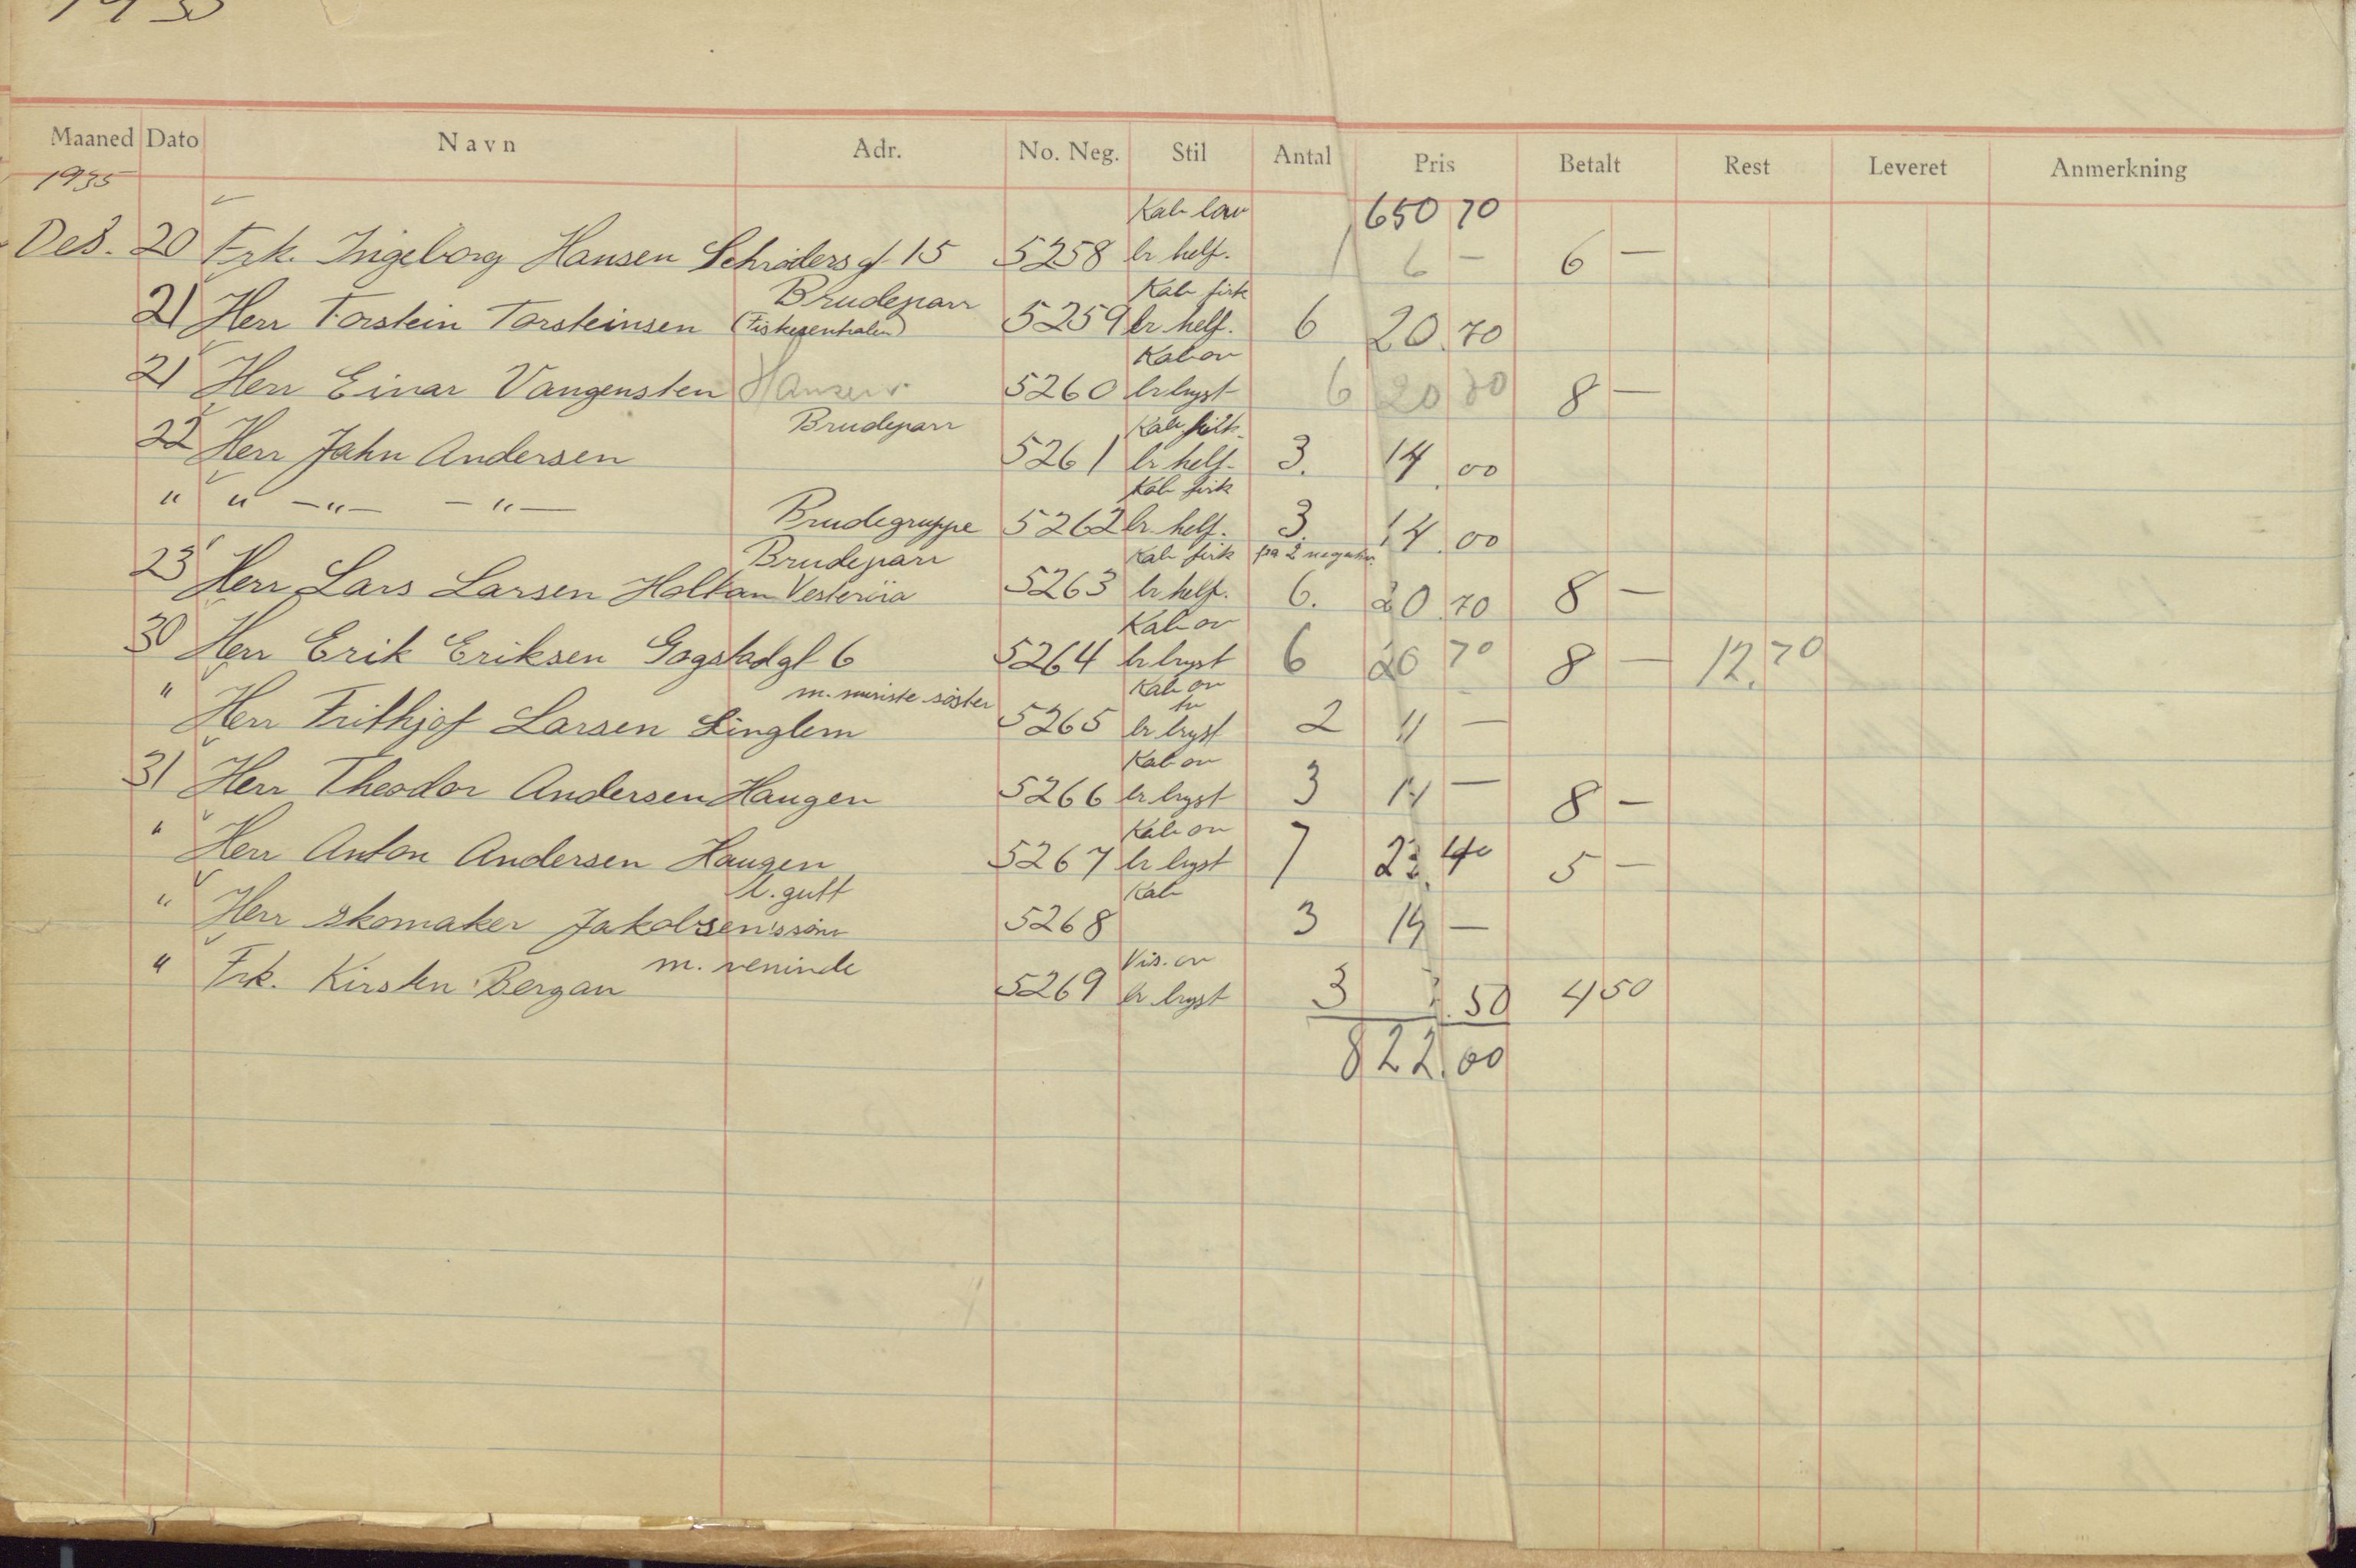 1935
Maaned Dato Navn Adr. No. Neg. Stil Antal Pris Betalt Rest Leveret Anmerkning
1935
Kab 650 70
Des. 20 Frk. Ingeborg Hansen Schrøders gt. 15 5258 br helf. 1 6 — 6 —
Brudeparr Kab
21 Herr Torstein Torsteinsen (Fiskesentralen) 5259 br. helf. 6 20.70
Kab ov
21 Herr Einar Vangensten 5260 br bryst 6 20 70 8 —
Brudeparr Kab
22 Herr Jahn Andersen 5261 br helf. 3. 14.00
Kab
" " —"— —"— Brudegruppe 5262 br. helf. 3. 14.00
Brudeparr Kab fra 2 negativ.
23 Herr Lars Larsen Holtan Vesterøia 5263 br helf. 6. 20 70 8 —
Kab ov
30 Herr Erik Eriksen Gogstadgt 6 5264 br bryst 6 20 70 8 — 12.70
m. søster Kab ov
" Herr Frithjof Larsen 5265 br bryst 2 11 —
Kab ov
31 Herr Theodor Andersen Haugen 5266 br bryst 3 14 — 8 —
Kab ov
" Herr Anton Andersen Haugen 5267 br bryst 7 23.40 5 —
l. gutt Kab
" Herr Skomaker Jakobsen's sønn 5268 3 14 —
m. veninde Vis. ov
" Frk. Kirsten Bergan 5269 br bryst 3 .50 4 50
822.00